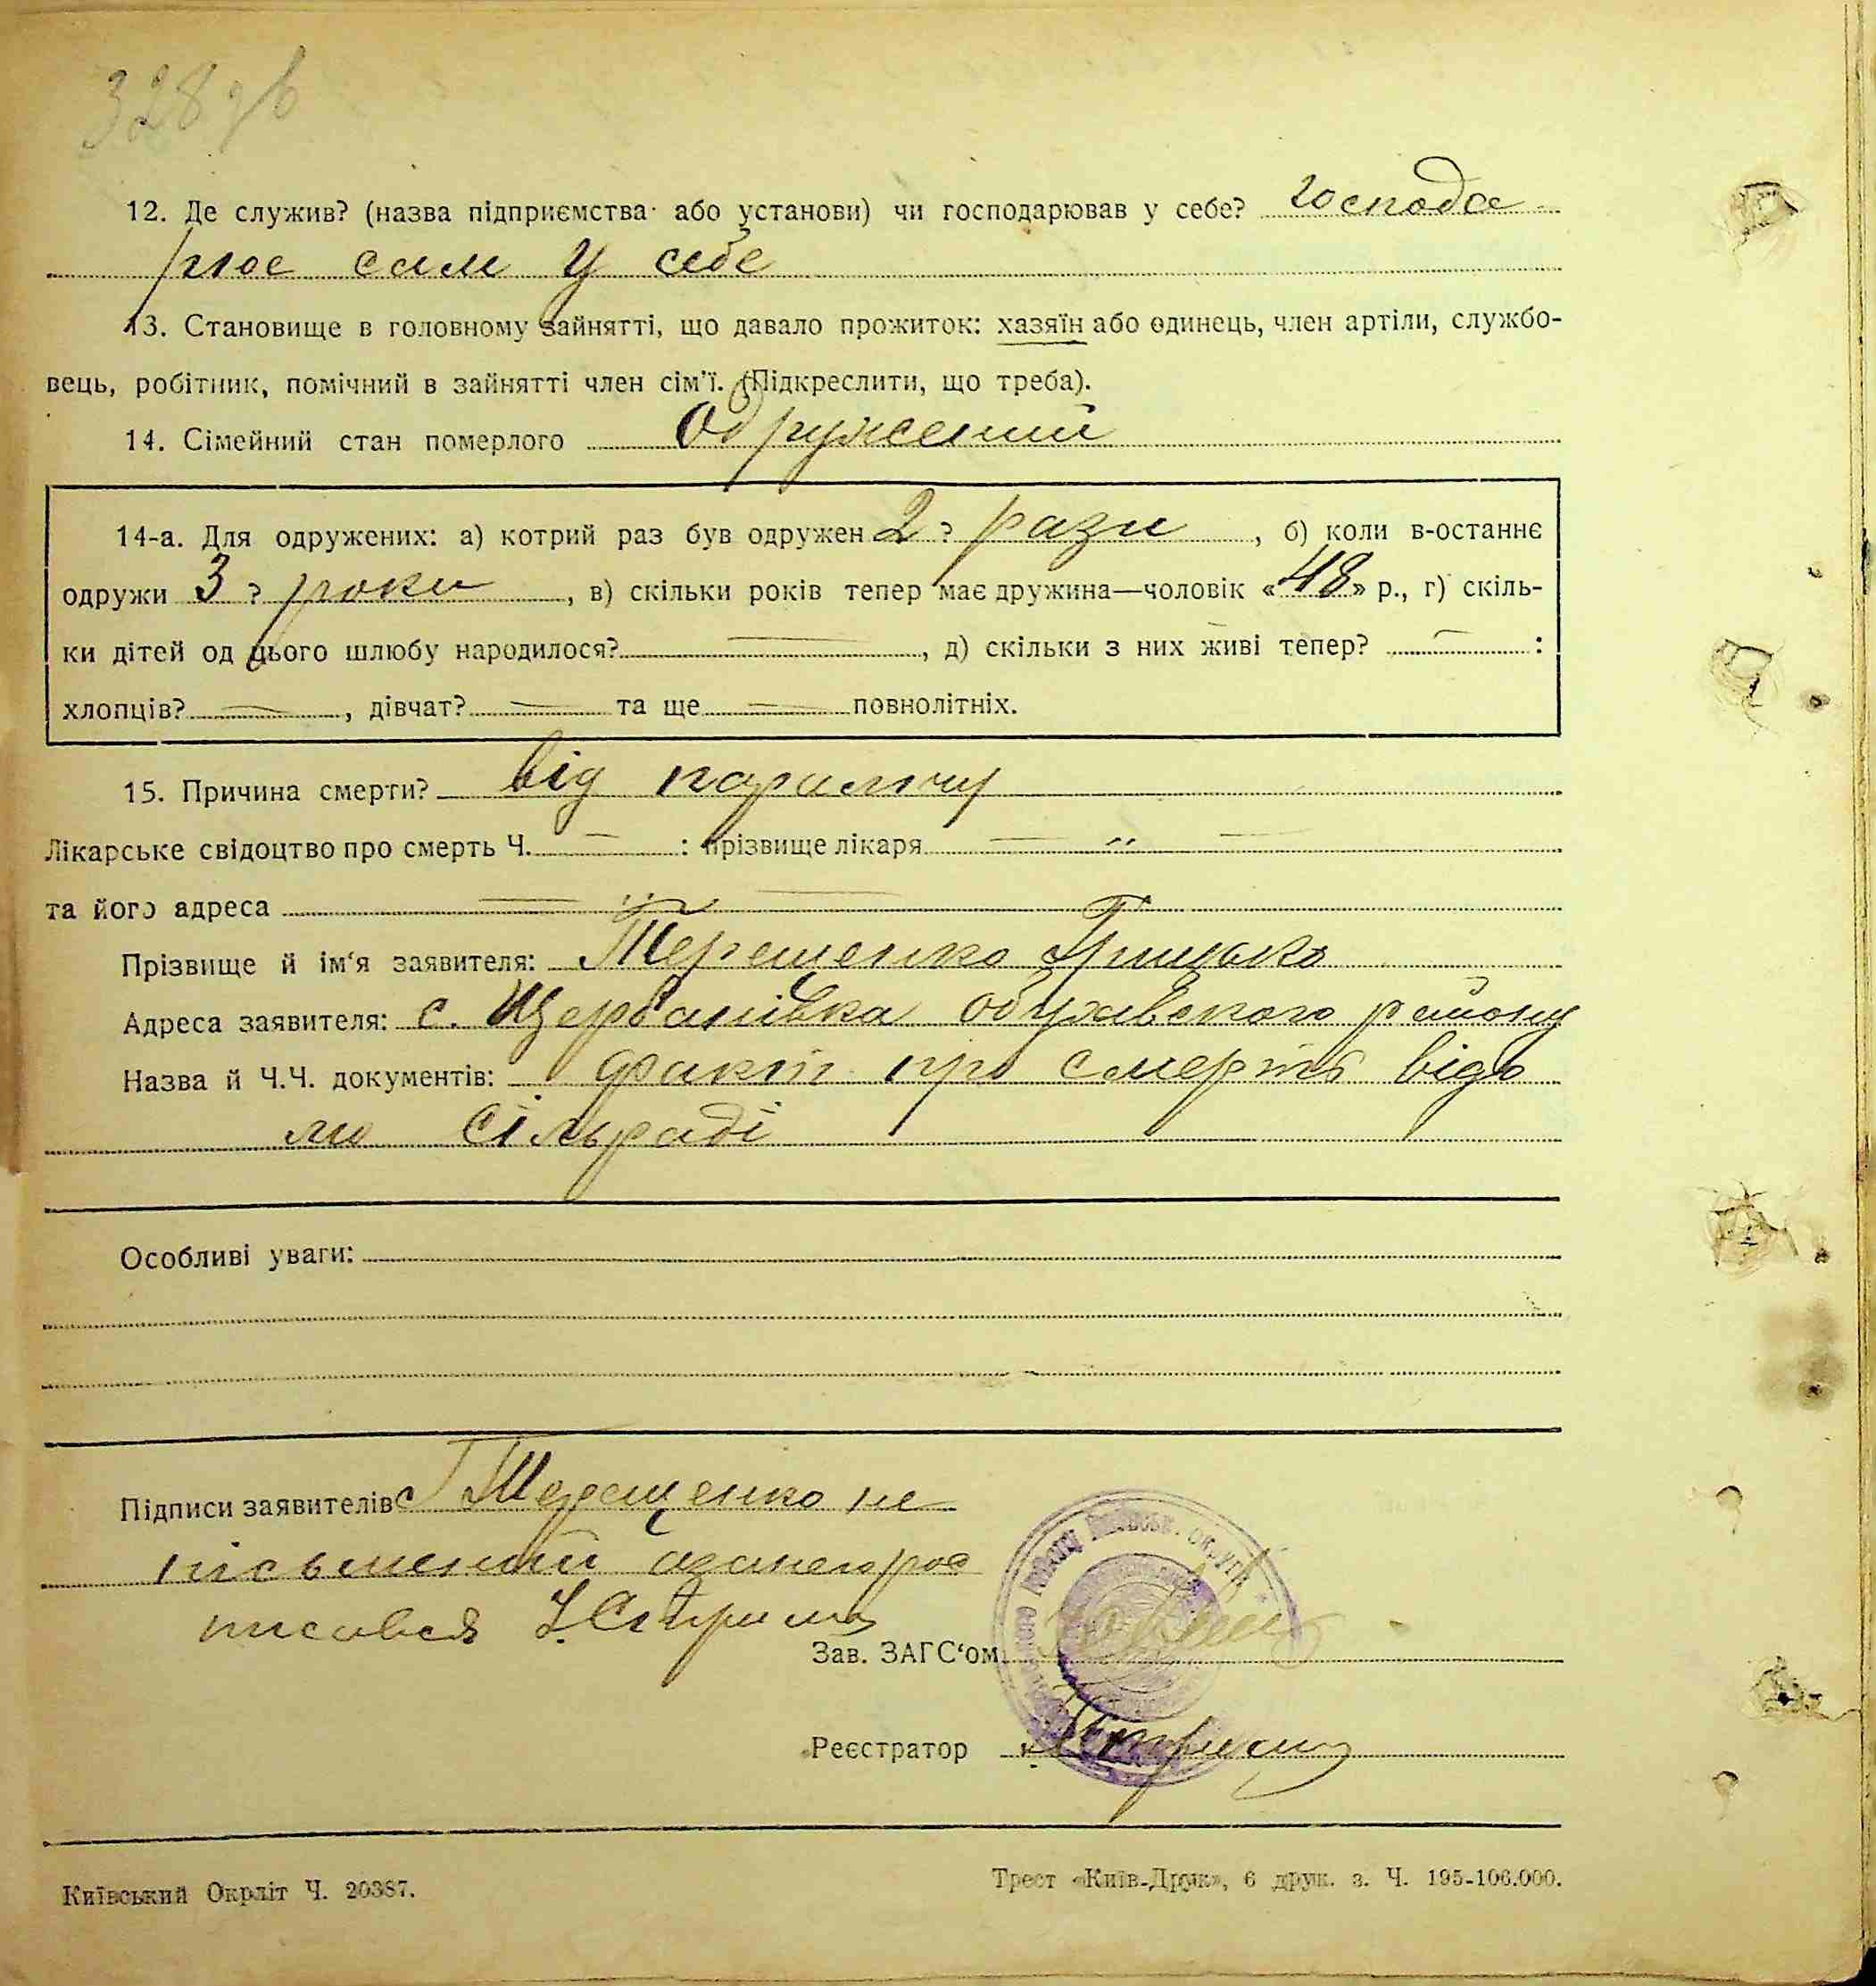 328 зв
12. Де служив? (назва підприємства або установи) чи господарював у себе? господа
рює сам у себе
13. Становище в головному зайнятті, що давало прожиток: хазяїн або одинець, член артіли, службо-
вець, робітник, помічний в зайнятті член сім'ї. (Підкреслити, що треба).
14. Сімейний стан померлого одружений
14-а. Для одружених: а) котрий раз був одружен 2? рази, б) коли в-останнє
одружи 3? роки, в) скільки років тепер має дружина—чоловік «48» р., г) скіль-
ки дітей од цього шлюбу народилося? —, д) скільки з них живі тепер? —:
хлопців? —, дівчат? — та ще — повнолітніх.
15. Причина смерти? від
Лікарське свідоцтво про смерть Ч. — : прізвище лікаря — „ —
та його адреса — „ —
Прізвище й ім'я заявителя: Терещенко Грицько
Адреса заявителя: с. Щербанівка обухавского району
Назва й Ч.Ч. документів: факт про смерть відо
мо сільраді
Особливі уваги:
Підписи заявителів Терещенко не
письмений
писався
Зав. ЗАГС'ом
Реєстратор
Київський Окрліт Ч. 20387.
Трест «Київ-Друк», 6 друк. з. Ч. 195-106.000.